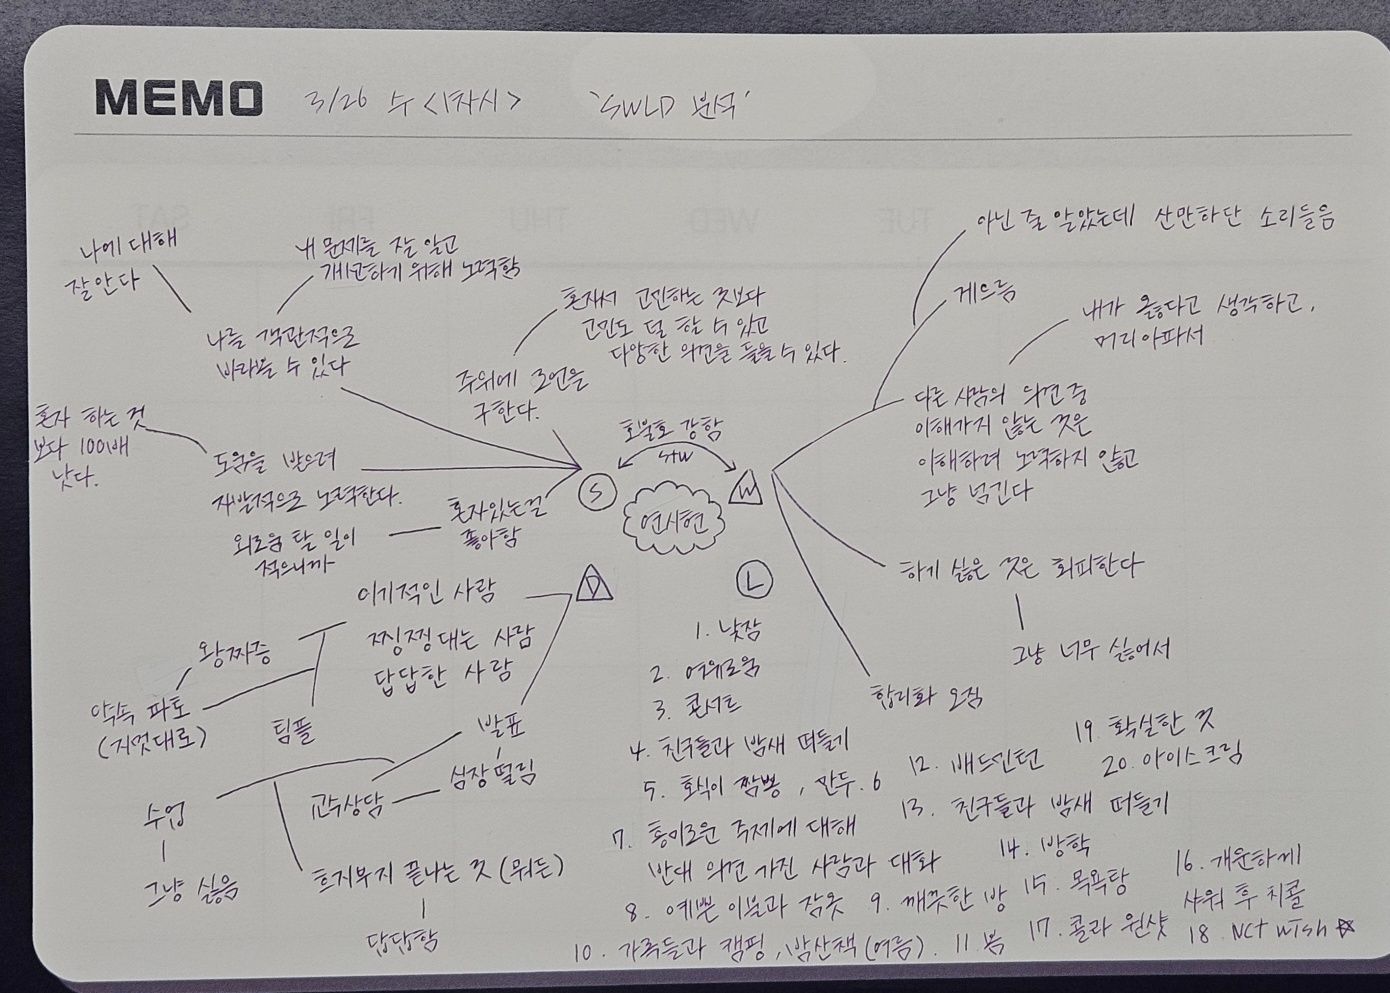 MEMO 3/26 수 <1차시> 'SWLD 분석'
SAT FRI THU WED TUE
나에 대해
잘 안다
내 문제를 잘 알고
개선하기 위해 노력함
나를 객관적으로
바라볼 수 있다
혼자서 고민하는 것보다
고민도 덜 할 수 있고
다양한 의견을 들을 수 있다.
주위에 조언을
구한다.
혼자 하는 것
보다 100배
낫다.
도움을 받으려
자발적으로 노력한다.
외로움 탈 일이
적으니까
혼자있는걸
좋아함
호불호 강함
S+W
S
W
연시현
D
L
아닌 줄 알았는데 산만하단 소리들음
게으름
내가 옳다고 생각하고,
머리아파서
다른 사람의 의견 중
이해가지 않는 것은
이해하려 노력하지 않고
그냥 넘긴다
하기 싫은 것은 회피한다
그냥 너무 싫어서
합리화 오짐
이기적인 사람
찡찡대는 사람
답답한 사람
왕짜증
약속 파토
(지멋대로)
팀플
발표
심장 떨림
교수상담
수업
그냥 싫음
흐지부지 끝나는 것 (뭐든)
답답함
1. 낮잠
2. 여유로움
3. 콘서트
4. 친구들과 밤새 떠들기
5. 호식이 짬뽕, 만두. 6
7. 흥미로운 주제에 대해
반대 의견 가진 사람과 대화
8. 예쁜 이불과 잠옷 9. 깨끗한 방
10. 가족들과 캠핑, 밤산책(여름). 11. 봄
12. 배드민턴
13. 친구들과 밤새 떠들기
14. 방학
15. 목욕탕
16. 개운하게
샤워 후 치콜
17. 콜라 원샷
18. NCT wish ☆
19. 확실한 것
20. 아이스크림